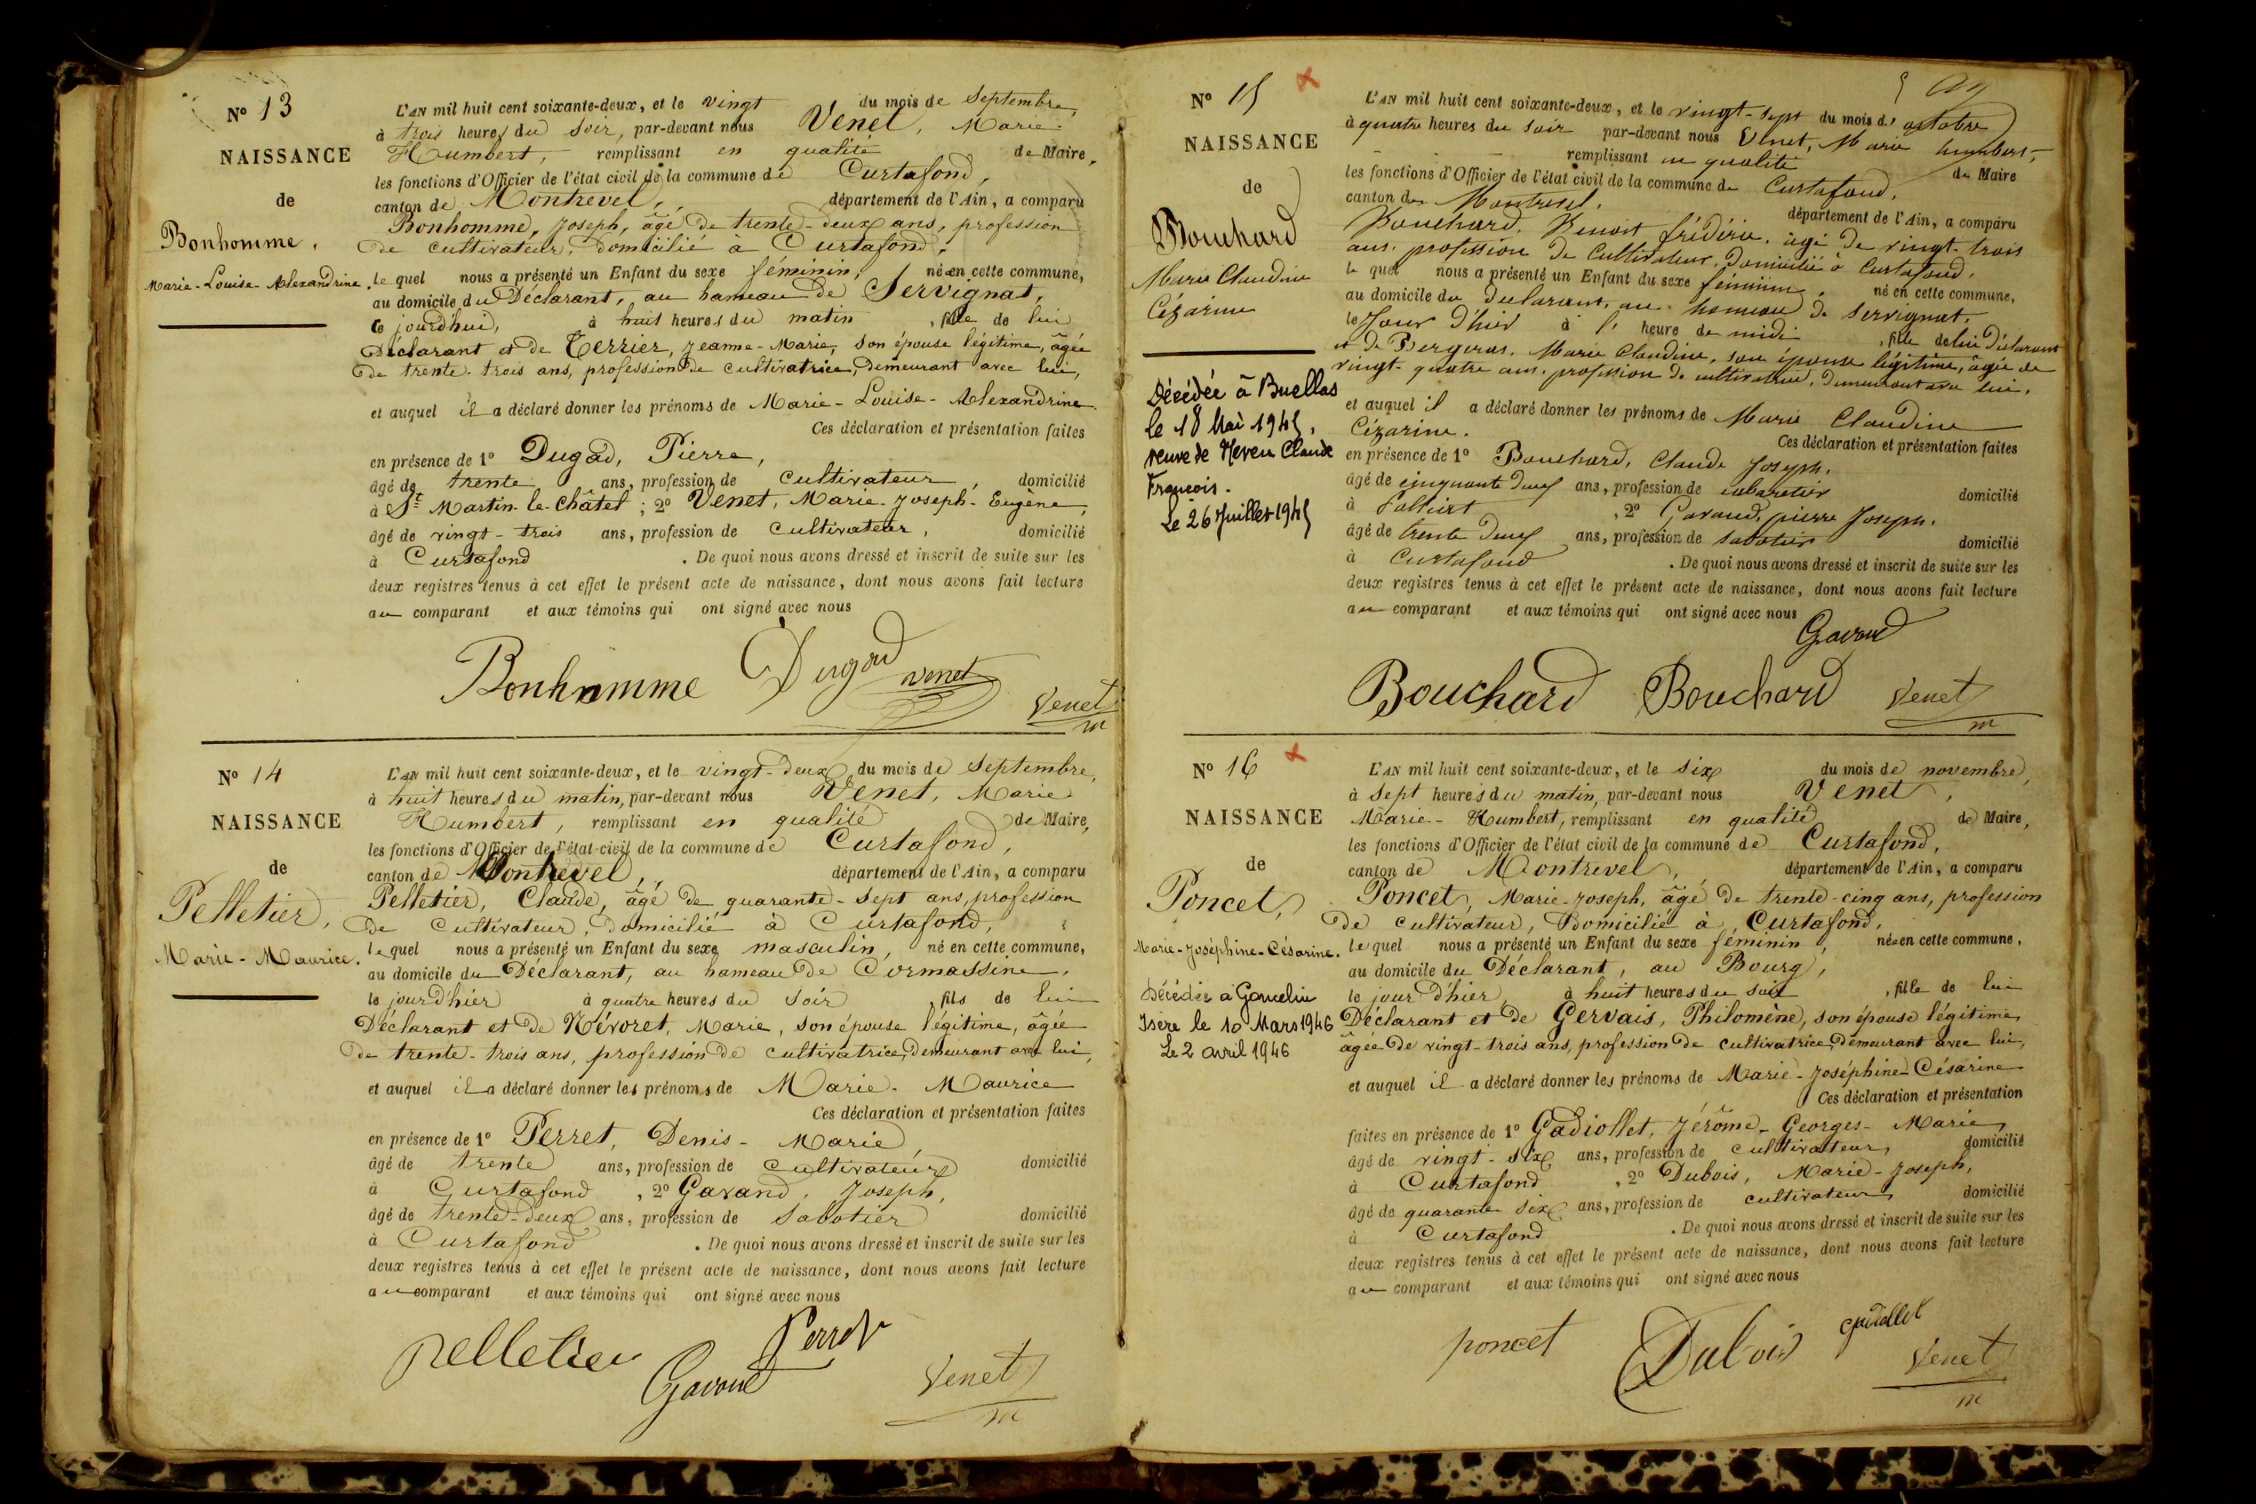 Nº 13
NAISSANCE
de
Bonhomme,
Marie-Louise-Alexandrine.
L'AN mil huit cent soixante-deux, et le vingt du mois de Septembre,
à trois heures du soir, par-devant nous Venet, Marie
Humbert, remplissant en qualité de Maire,
les fonctions d'Officier de l'état civil de la commune de Curtafond,
canton de Montrevel, département de l'Ain, a comparu
Bonhomme, Joseph, âgé de trente-deux ans, profession
de cultivateur, domicilié à Curtafond,
lequel nous a présenté un Enfant du sexe féminin, née en cette commune,
au domicile du Déclarant, au hameau de Servignat,
ce jourd'hui, à huit heures du matin, fille de lui
Déclarant et de Terrier, Jeanne-Marie, son épouse légitime, âgée
de trente-trois ans, profession de cultivatrice, demeurant avec lui,
et auquel il a déclaré donner les prénoms de Marie-Louise-Alexandrine.
Ces déclaration et présentation faites
en présence de 1º Dugad, Pierre,
âgé de trente ans, profession de cultivateur, domicilié
à St Martin-le-Châtel; 2º Venet, Marie-Joseph-Eugène,
âgé de vingt-trois ans, profession de cultivateur, domicilié
à Curtafond. De quoi nous avons dressé et inscrit de suite sur les
deux registres tenus à cet effet le présent acte de naissance, dont nous avons fait lecture
au comparant et aux témoins qui ont signé avec nous
Bonhomme Dugad venet
Venet
m
Nº 14
NAISSANCE
de
Pelletier,
Marie-Maurice.
L'AN mil huit cent soixante-deux, et le vingt-deux du mois de Septembre,
à huit heures du matin, par-devant nous Venet, Marie
Humbert, remplissant en qualité de Maire,
les fonctions d'Officier de l'état civil de la commune de Curtafond,
canton de Montrevel, département de l'Ain, a comparu
Pelletier, Claude, âgé de quarante-sept ans, profession
de cultivateur, domicilié à Curtafond,
lequel nous a présenté un Enfant du sexe masculin, né en cette commune,
au domicile du Déclarant, au hameau de Cormassine,
le jour d'hier à quatre heures du soir, fils de lui
Déclarant et de Névoret, Marie, son épouse légitime, âgée
de trente-trois ans, profession de cultivatrice, demeurant avec lui,
et auquel il a déclaré donner les prénoms de Marie-Maurice
Ces déclaration et présentation faites
en présence de 1º Perret, Denis-Marie
âgé de trente ans, profession de cultivateur domicilié
à Curtafond, 2º Gavand, Joseph,
âgé de trente-deux ans, profession de sabotier domicilié
à Curtafond. De quoi nous avons dressé et inscrit de suite sur les
deux registres tenus à cet effet le présent acte de naissance, dont nous avons fait lecture
au comparant et aux témoins qui ont signé avec nous
pelletier Gavand Perret
Venet
m
Nº 15
NAISSANCE
de
Bouchard
Marie Claudine
Cézarine
Décédée à Buellas
le 18 Mai 1945,
veuve de Neveu Claude
François.
Le 26 Juillet 1945
L'AN mil huit cent soixante-deux, et le vingt-sept du mois d'octobre
à quatre heures du soir par-devant nous Venet, Marie humbert,
remplissant en qualité de Maire
les fonctions d'Officier de l'état civil de la commune de Curtafond,
canton de Montrevel, département de l'Ain, a comparu
Bouchard, Benoit frédéric, âgé de vingt-trois
ans, profession de Cultivateur, domicilié à Curtafond,
lequel nous a présenté un Enfant du sexe féminin, né en cette commune,
au domicile du déclarant, au hameau de servignat,
le jour d'hier à l' heure de midi, fille de lui déclarant
et de Bergeras, Marie Claudine, son épouse légitime, âgée de
vingt-quatre ans, profession de cultivatrice, demeurant avec lui,
et auquel il a déclaré donner les prénoms de Marie Claudine
Cézarine. Ces déclaration et présentation faites
en présence de 1º Bouchard, Claude Joseph,
âgé de cinquante neuf ans, profession de cabaretier domicilié
à , 2º Gavand, pierre Joseph,
âgé de trente deux ans, profession de sabotier domicilié
à Curtafond. De quoi nous avons dressé et inscrit de suite sur les
deux registres tenus à cet effet le présent acte de naissance, dont nous avons fait lecture
au comparant et aux témoins qui ont signé avec nous
Gavand
Bouchard Bouchard Venet
m
Nº 16
NAISSANCE
de
Poncet,
Marie-Joséphine-Césarine.
Décédée à Goncelin
Isère le 10 Mars 1946
Le 2 avril 1946
L'AN mil huit cent soixante-deux, et le six du mois de novembre,
à sept heures du matin, par-devant nous Venet,
Marie-Humbert, remplissant en qualité de Maire,
les fonctions d'Officier de l'état civil de la commune de Curtafond,
canton de Montrevel, département de l'Ain, a comparu
Poncet, Marie-Joseph, âgé de trente-cinq ans, profession
de cultivateur, Domicilié à Curtafond,
lequel nous a présenté un Enfant du sexe féminin, née en cette commune,
au domicile du Déclarant, au Bourg,
le jour d'hier, à huit heures du soir, fille de lui
Déclarant et de Gervais, Philomène, son épouse légitime,
âgée de vingt-trois ans, profession de cultivatrice, demeurant avec lui,
et auquel il a déclaré donner les prénoms de Marie-Joséphine-Césarine
Ces déclaration et présentation
faites en présence de 1º Gadiollet, Jérôme-Georges-Marie,
âgé de vingt-six ans, profession de cultivateur, domicilié
à Curtafond, 2º Dubois, Marie-Joseph,
âgé de quarante six ans, profession de cultivateur, domicilié
à Curtafond. De quoi nous avons dressé et inscrit de suite sur les
deux registres tenus à cet effet le présent acte de naissance, dont nous avons fait lecture
au comparant et aux témoins qui ont signé avec nous
poncet Dubois gadiollet
Venet
m